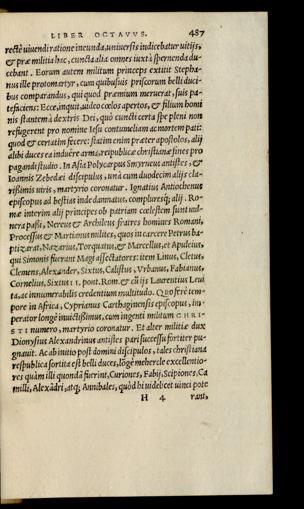 LIBER OCTAVVS. 487
rectè viuendi ratione ineunda, uniuersis indicebatur uitijs,
& præ militia hac, cuncta alia omnes iuxtà spernenda du-
cebant. Eorum autem militum princeps extitit Stepha-
nus ille protomartyr, cum quibusuis priscorum belli duci-
bus comparandus, qui quod præmium meruerat, suis pa-
tefaciens: Ecce, inquit, uideo cœlos apertos, & filium homi
nis stantem à dextris Dei, quò cuncti certa spe pleni non
refugerent pro nomine Iesu contumeliam ac mortem pati:
quod & certatim fecere: statim enim præter apostolos, alij
alibi duces ea induêre arma, reipublicæ christianæ fines pro
pagandi studio. In Asia Polycarpus Smyrneus antistes, &
Ioannis Zebedæi discipulus, unà cum duodecim alijs cla-
rissimis uiris, martyrio coronatur. Ignatius Antiochenus
episcopus ad bestias inde damnatus, compluresq́; alij. Ro-
mæ interim alij principes ob patriam cœlestem sunt uul-
nera passi, Nereus & Archileus fratres homines Romani,
Processus & Martianus milites, quos in carcere Petrus ba-
ptizarat, Nazarius, Torquatus, & Marcellus, et Apuleius,
qui Simonis fuerant Magi assectatores: item Linus, Cletus,
Clemens, Alexander, Sixtus, Calistus, Vrbanus, Fabianus,
Cornelius, Sixtus II. pont. Rom. & cū ijs Laurentius Leui
ta, ac innumerabilis credentium multitudo. Quo ferè tem-
pore in Africa, Cyprianus Carthaginensis episcopus, im-
perator longè inuictissimus, cum ingenti militum CHRI-
STI numero, martyrio coronatur. Et alter militiæ dux
Dionysius Alexandrinus antistes pari successu fortiter pu-
gnauit. Ac ab initio post domini discipulos, tales christiana
respublica sortita est belli duces, lōgè mehercle excellentio-
res quàm illi quondā fuerint, Curiones, Fabij, Scipiones, Ca
milli, Alexādri, atq́; Annibales, quòd hi uidelicet uinci pote
H 4 rant,